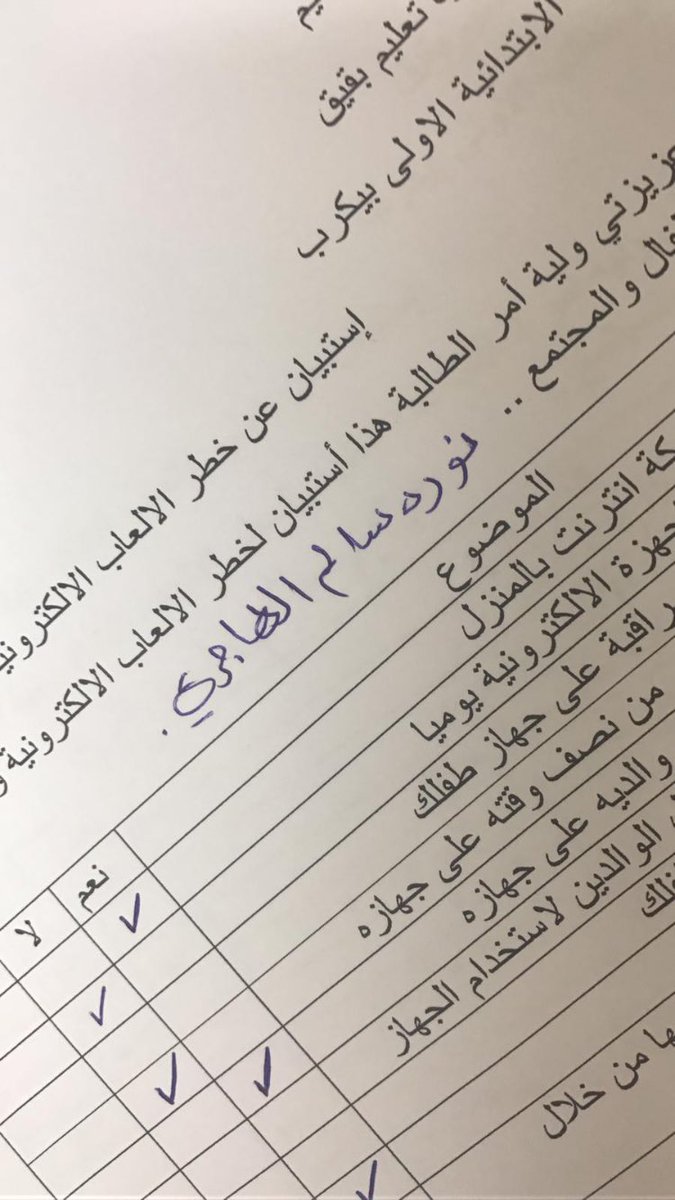 تعليم بقيق
الابتدائية الاولى بيكرب
إستبيان عن خطر الالعاب الالكترونية
عزيزتي ولية أمر الطالبة هذا أستبيان لخطر الالعاب الالكترونية
والمجتمع ..
نوره سالم الهاجري.
الموضوع نعم لا
انترنت بالمنزل ✓
الالكترونية يوميا ✓
على جهاز طفلك ✓
من نصف وقته على جهازه ✓
والديه على جهازه
الوالدين لاستخدام الجهاز ✓
من خلال